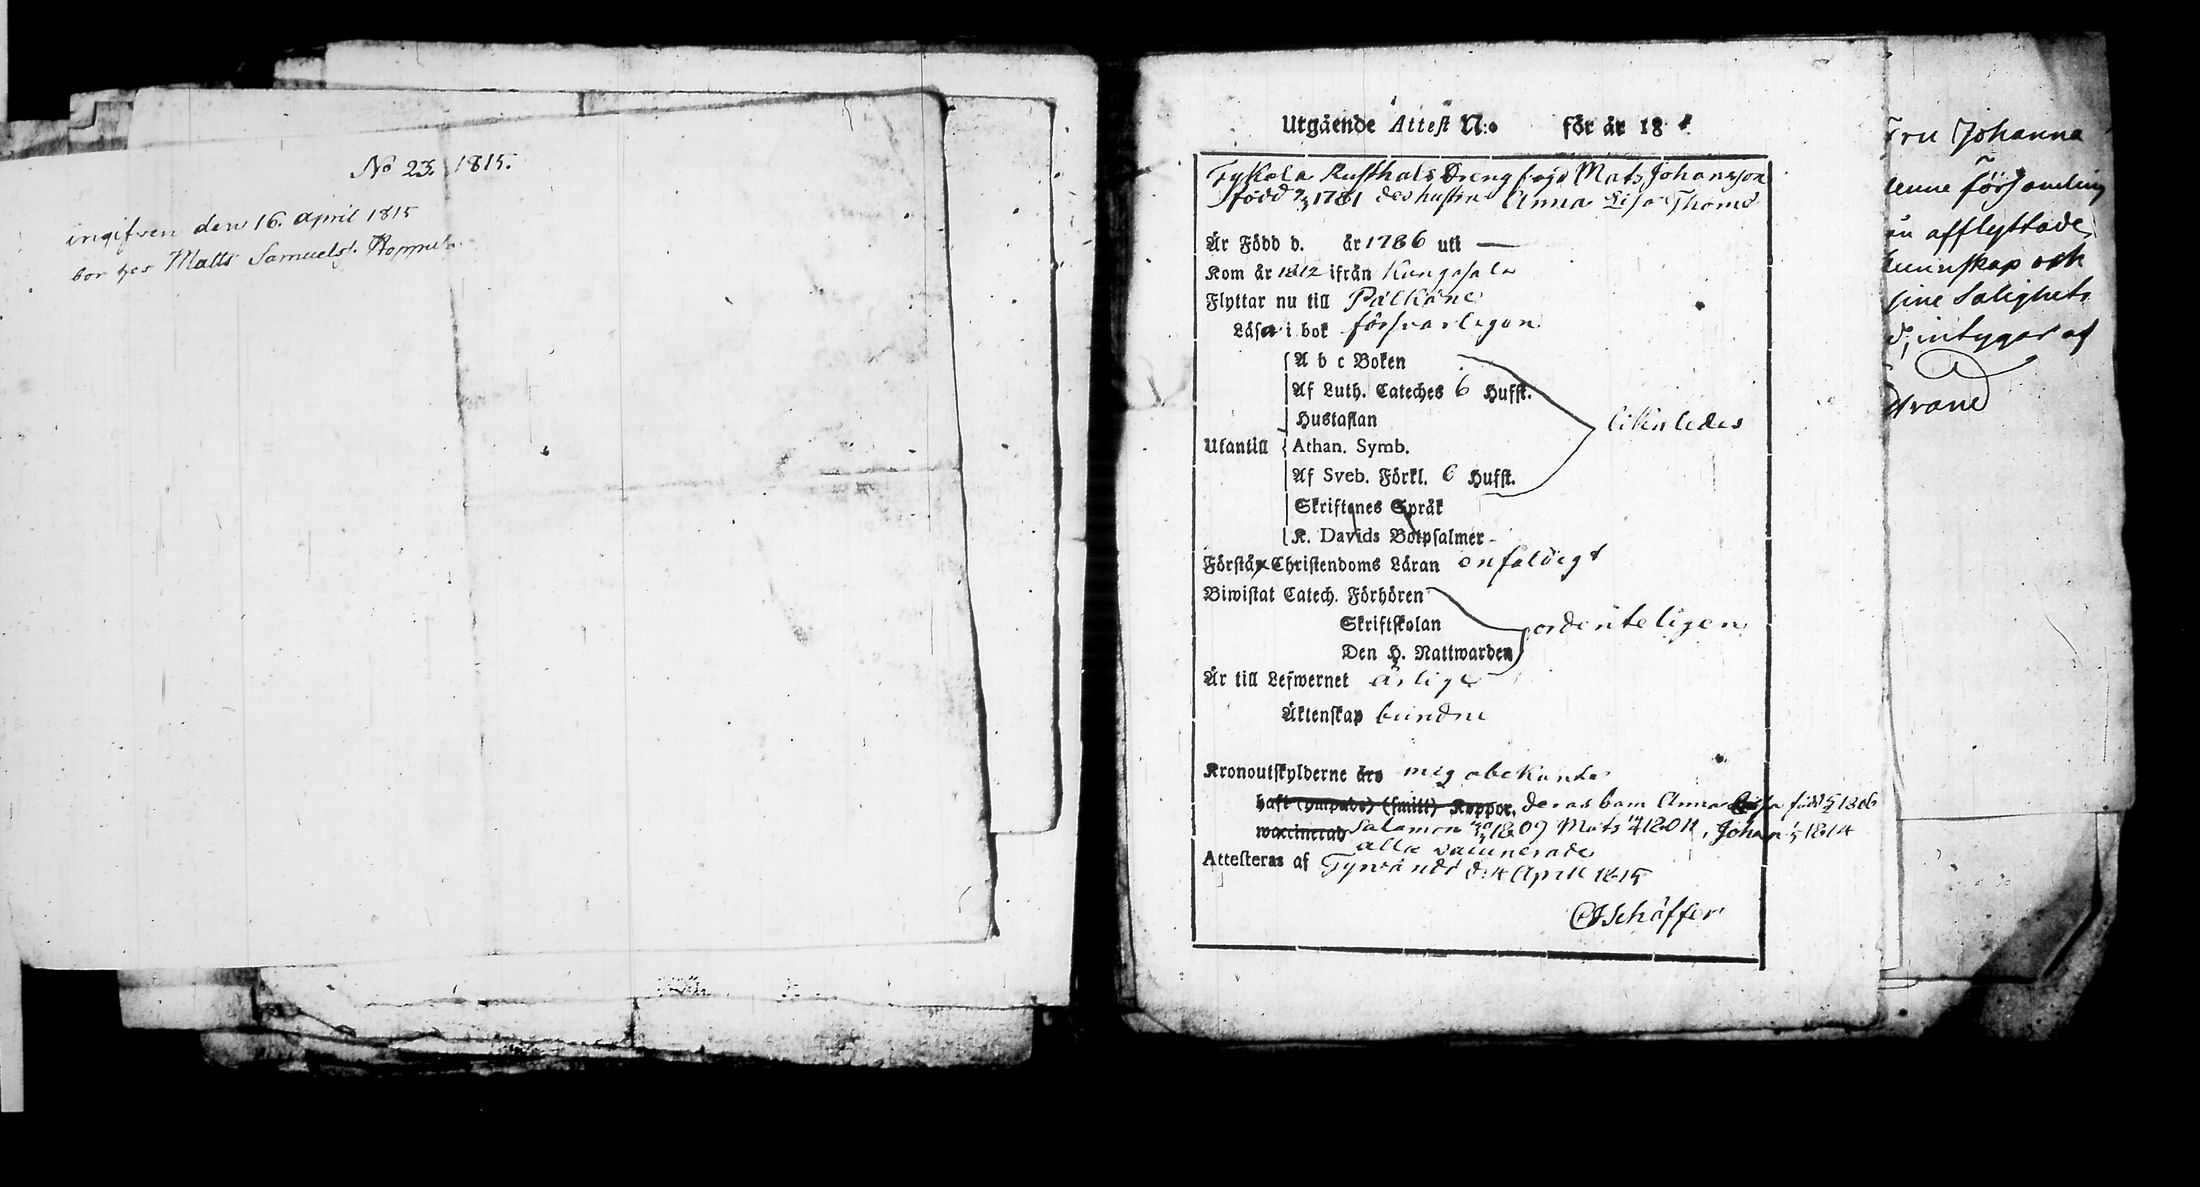 No 23. 1815.
ingifven den 16. April 1815
bor hos Matts Samuels.
Utgående Attest N:o för år 18
Rusthåls Dreng Mats Johansson
född 1781 des hustru Anna Lisa Thoms
Är Född d. år 1786 uti —
Kom år 1812 ifrån Kangasala
Flyttar nu till Pälkäne
Läsa i bok försvarligen
A b c Boken
Af Luth. Cateches 6 Hufst.
Hustaflan
likaledes
Utantill Athan. Symb.
Af Sveb. Förkl. 6 Hufst.
Skriftenes Språk
K. Davids Botpsalmer
Förstå Christendoms Läran enfaldigt
Biwistat Catech. Förhören
Skriftskolan
ordenteligen
Den H. Nattwarden
Är till Lefwernet ärlige
Äktenskap bundne
Kronoutskylderne äro mig obekante
haft (ympade) (smitt) Koppor. deras barn Anna Lisa född 1806
waccinerad Salamon 1809 Mats, Johan 1814
alla vaccinerade
Attesteras af Tyrvändö d. 14 April 1815
CJSchäffer
Fru Johanna
denne församling
afflyttade
kunnskap och
sine Salighets
intygar af